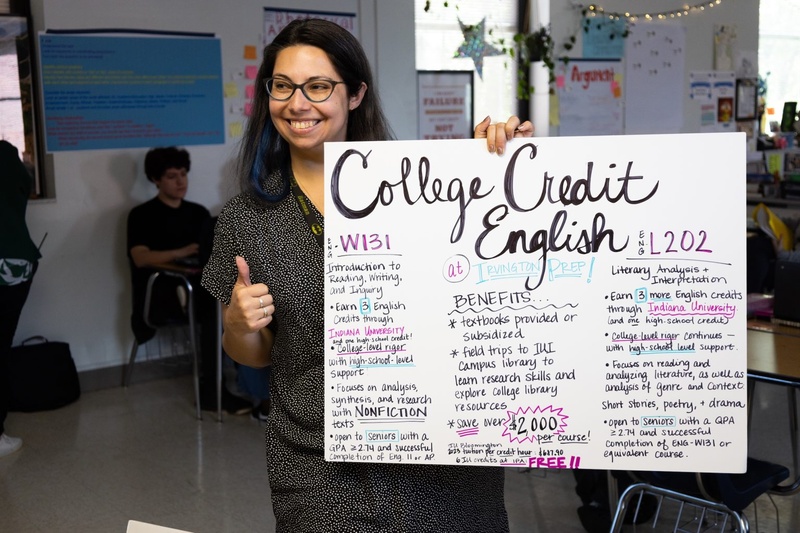 College Credit
English
at IRVINGTON PREP!
ENG W131
Introduction to
Reading, Writing,
and Inquiry
• Earn 3 English
Credits through
INDIANA UNIVERSITY
and one high-school credit!
• College-level rigor
with high-school-level
support
• Focuses on analysis,
synthesis, and research
with NONFICTION
texts
• open to Seniors with a
GPA ≥ 2.74 and successful
completion of Eng. 11 or AP.
BENEFITS...
* textbooks provided or
subsidized
* field trips to IUI
campus library to
learn research skills and
explore college library
resources
* save over $2,000
per course!
IU Bloomington
tuition per credit hour:
6 IU credits at IPA FREE!!
ENG L202
Literary Analysis +
Interpretation
• Earn 3 more English credits
through Indiana University
(and one high-school credit)
• College-level rigor continues –
with high-school level support.
• Focuses on reading and
analyzing literature, as well as
analysis of genre and context
Short stories, poetry, + drama
• open to Seniors with a GPA
≥ 2.74 and successful
completion of ENG-W131 or
equivalent course.
Argument
FAILURE